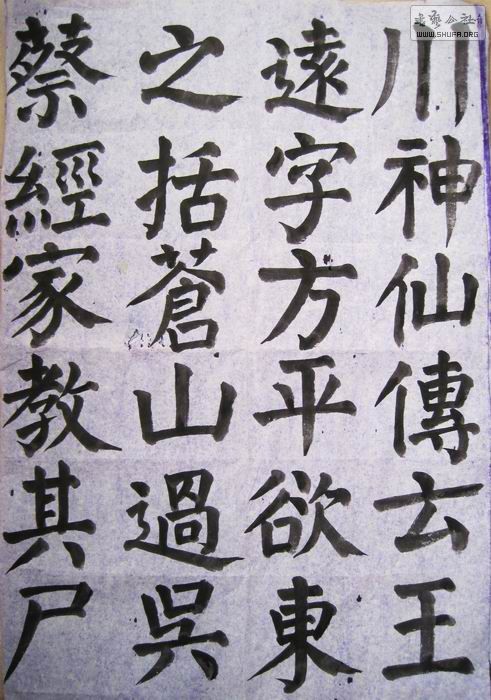 川神仙傳云王
遠字方平欲東
之括蒼山過吳
蔡經家教其尸
WWW.SHUFA.ORG